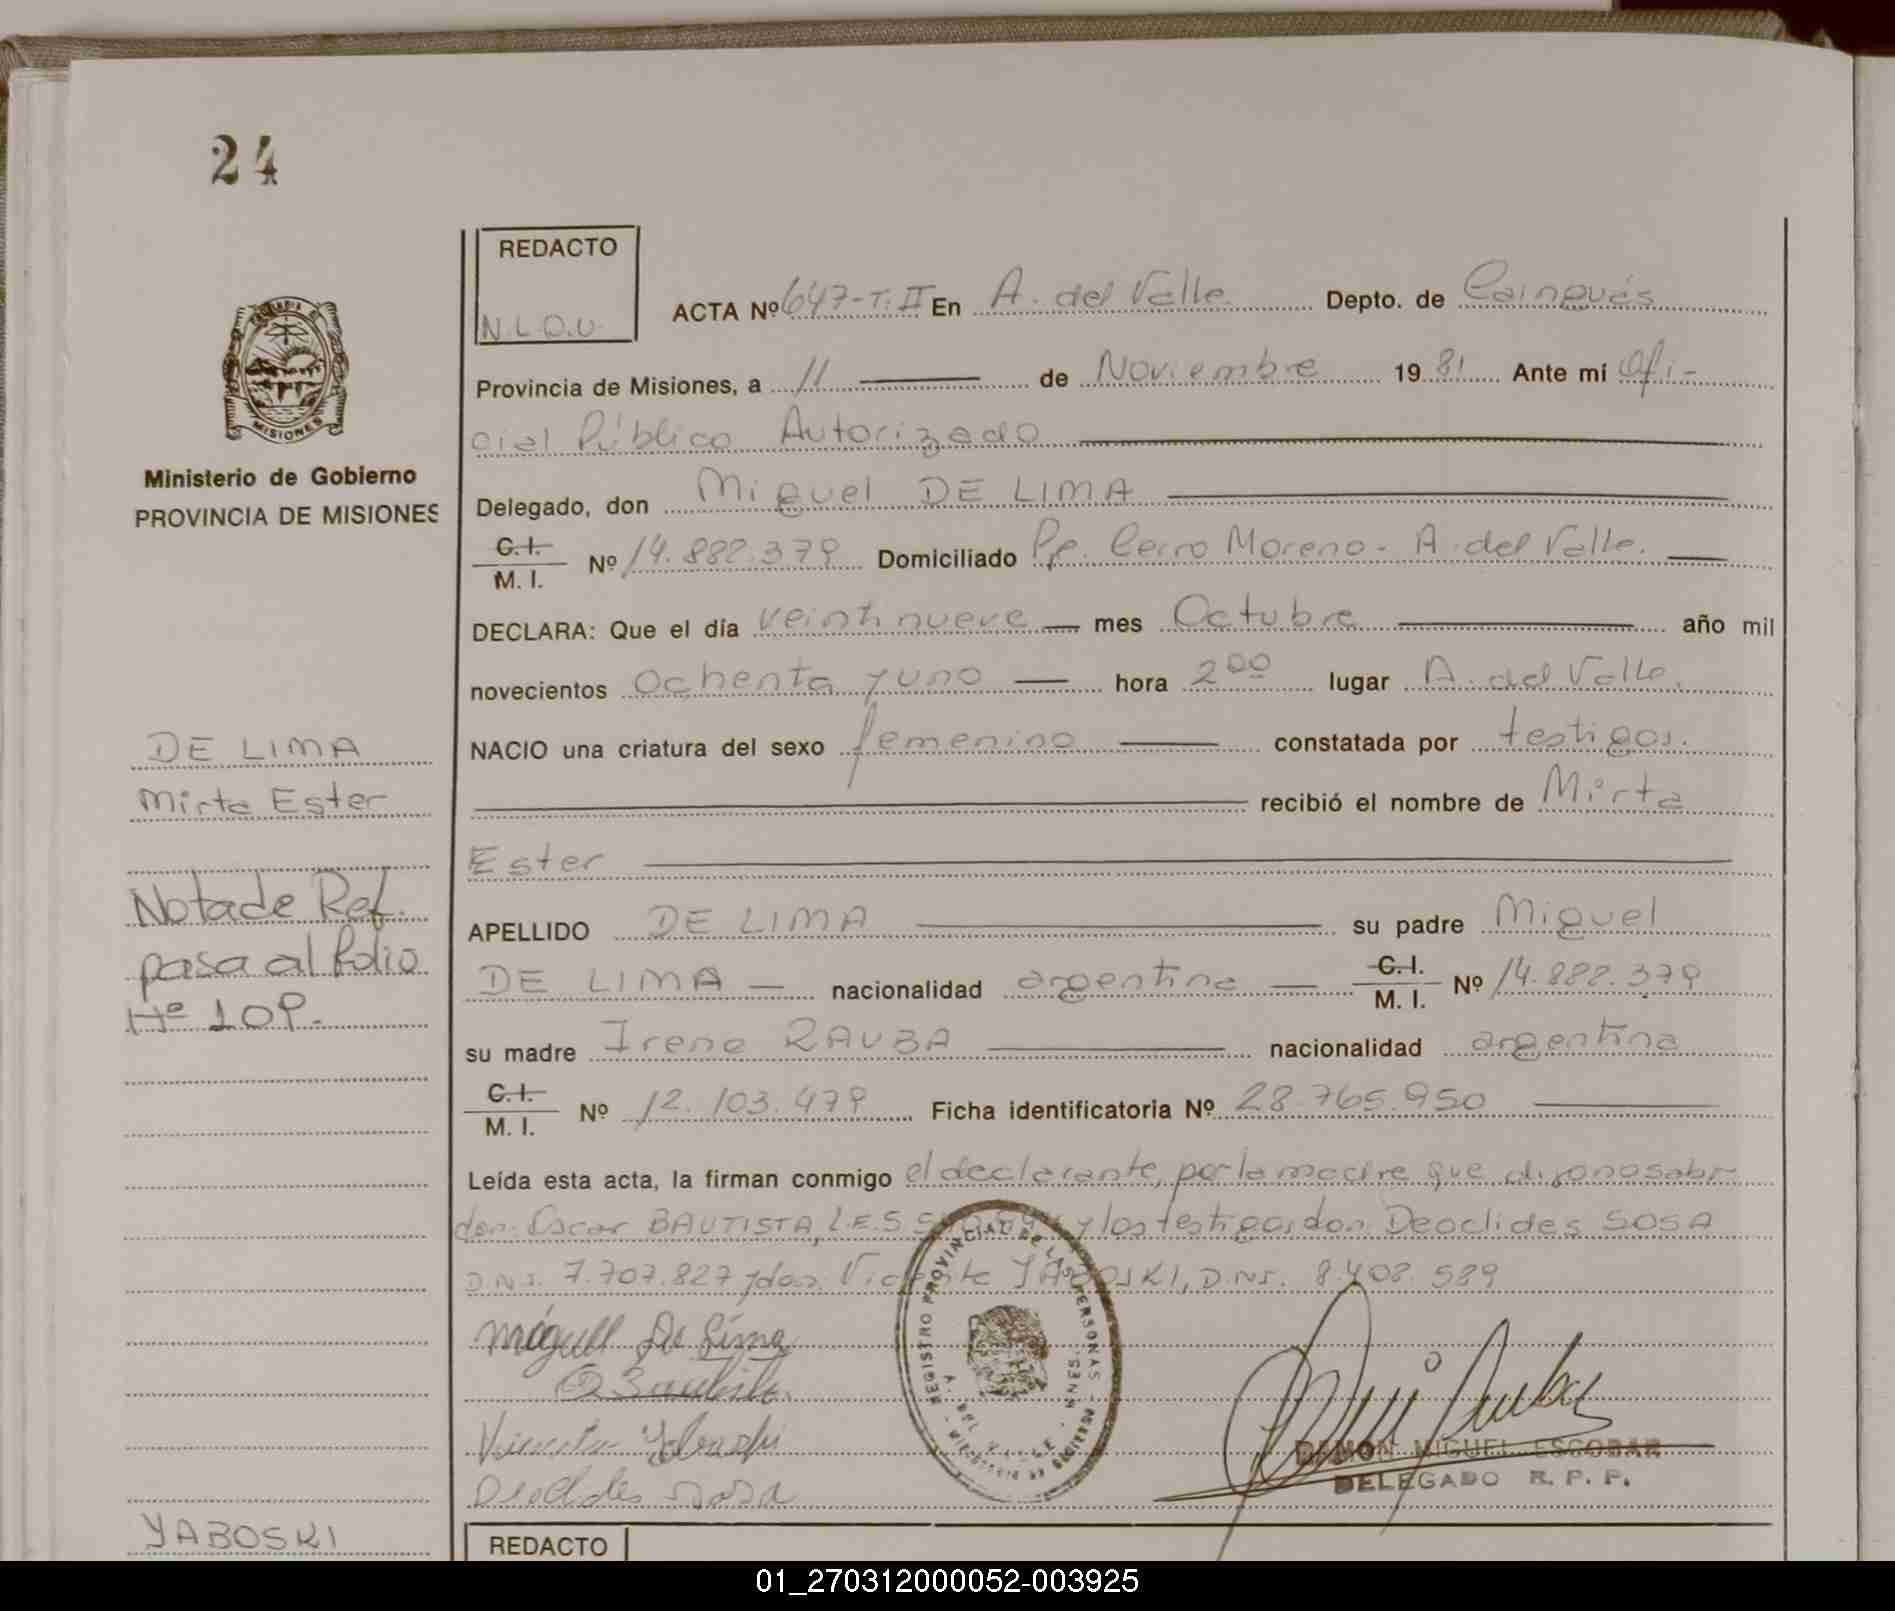 24
REDACTO
N.L.O.U.
ACTA Nº 647-T.II En A. del Valle Depto. de Cainguás
Provincia de Misiones, a 11 de Noviembre 1981 Ante mí Ofi-
cial Público Autorizado
Delegado, don Miguel DE LIMA
C.I. M.I. Nº 14.882.379 Domiciliado Pje. Cerro Moreno - A. del Valle.
DECLARA: Que el día veintinueve mes Octubre año mil
novecientos ochenta y uno hora 2 00 lugar A. del Valle.
NACIO una criatura del sexo femenino constatada por testigos.
recibió el nombre de Mirta
Ester
APELLIDO DE LIMA su padre Miguel
DE LIMA nacionalidad argentina C.I. M.I. Nº 14.882.379
su madre Irene RAUBA nacionalidad argentina
C.I. M.I. Nº 12.103.479 Ficha identificatoria Nº 28.765.950
Leída esta acta, la firman conmigo el declarante, por la madre que dijo no saber
don: Oscar BAUTISTA, L.E. y los testigos don Deoclides SOSA
D.N.I. 7.707.827 y don: Vicente YABOSKI, D.N.I. 8.408.589
Miguel De Lima
O Bautista
Vicente Yaboski
Deoclides sosa
REGISTRO PROVINCIAL DE LAS PERSONAS - MNES.
A. DEL VALLE
MINISTERIO DE GOBIERNO
RAMON MIGUEL ESCOBAR
DELEGADO R. P. P.
REDACTO
PROVINCIA DE
MISIONES
Ministerio de Gobierno
PROVINCIA DE MISIONES
DE LIMA
Mirta Ester
Nota de Ref.
pasa al folio
Nº 109.
YABOSKI
01_270312000052-003925